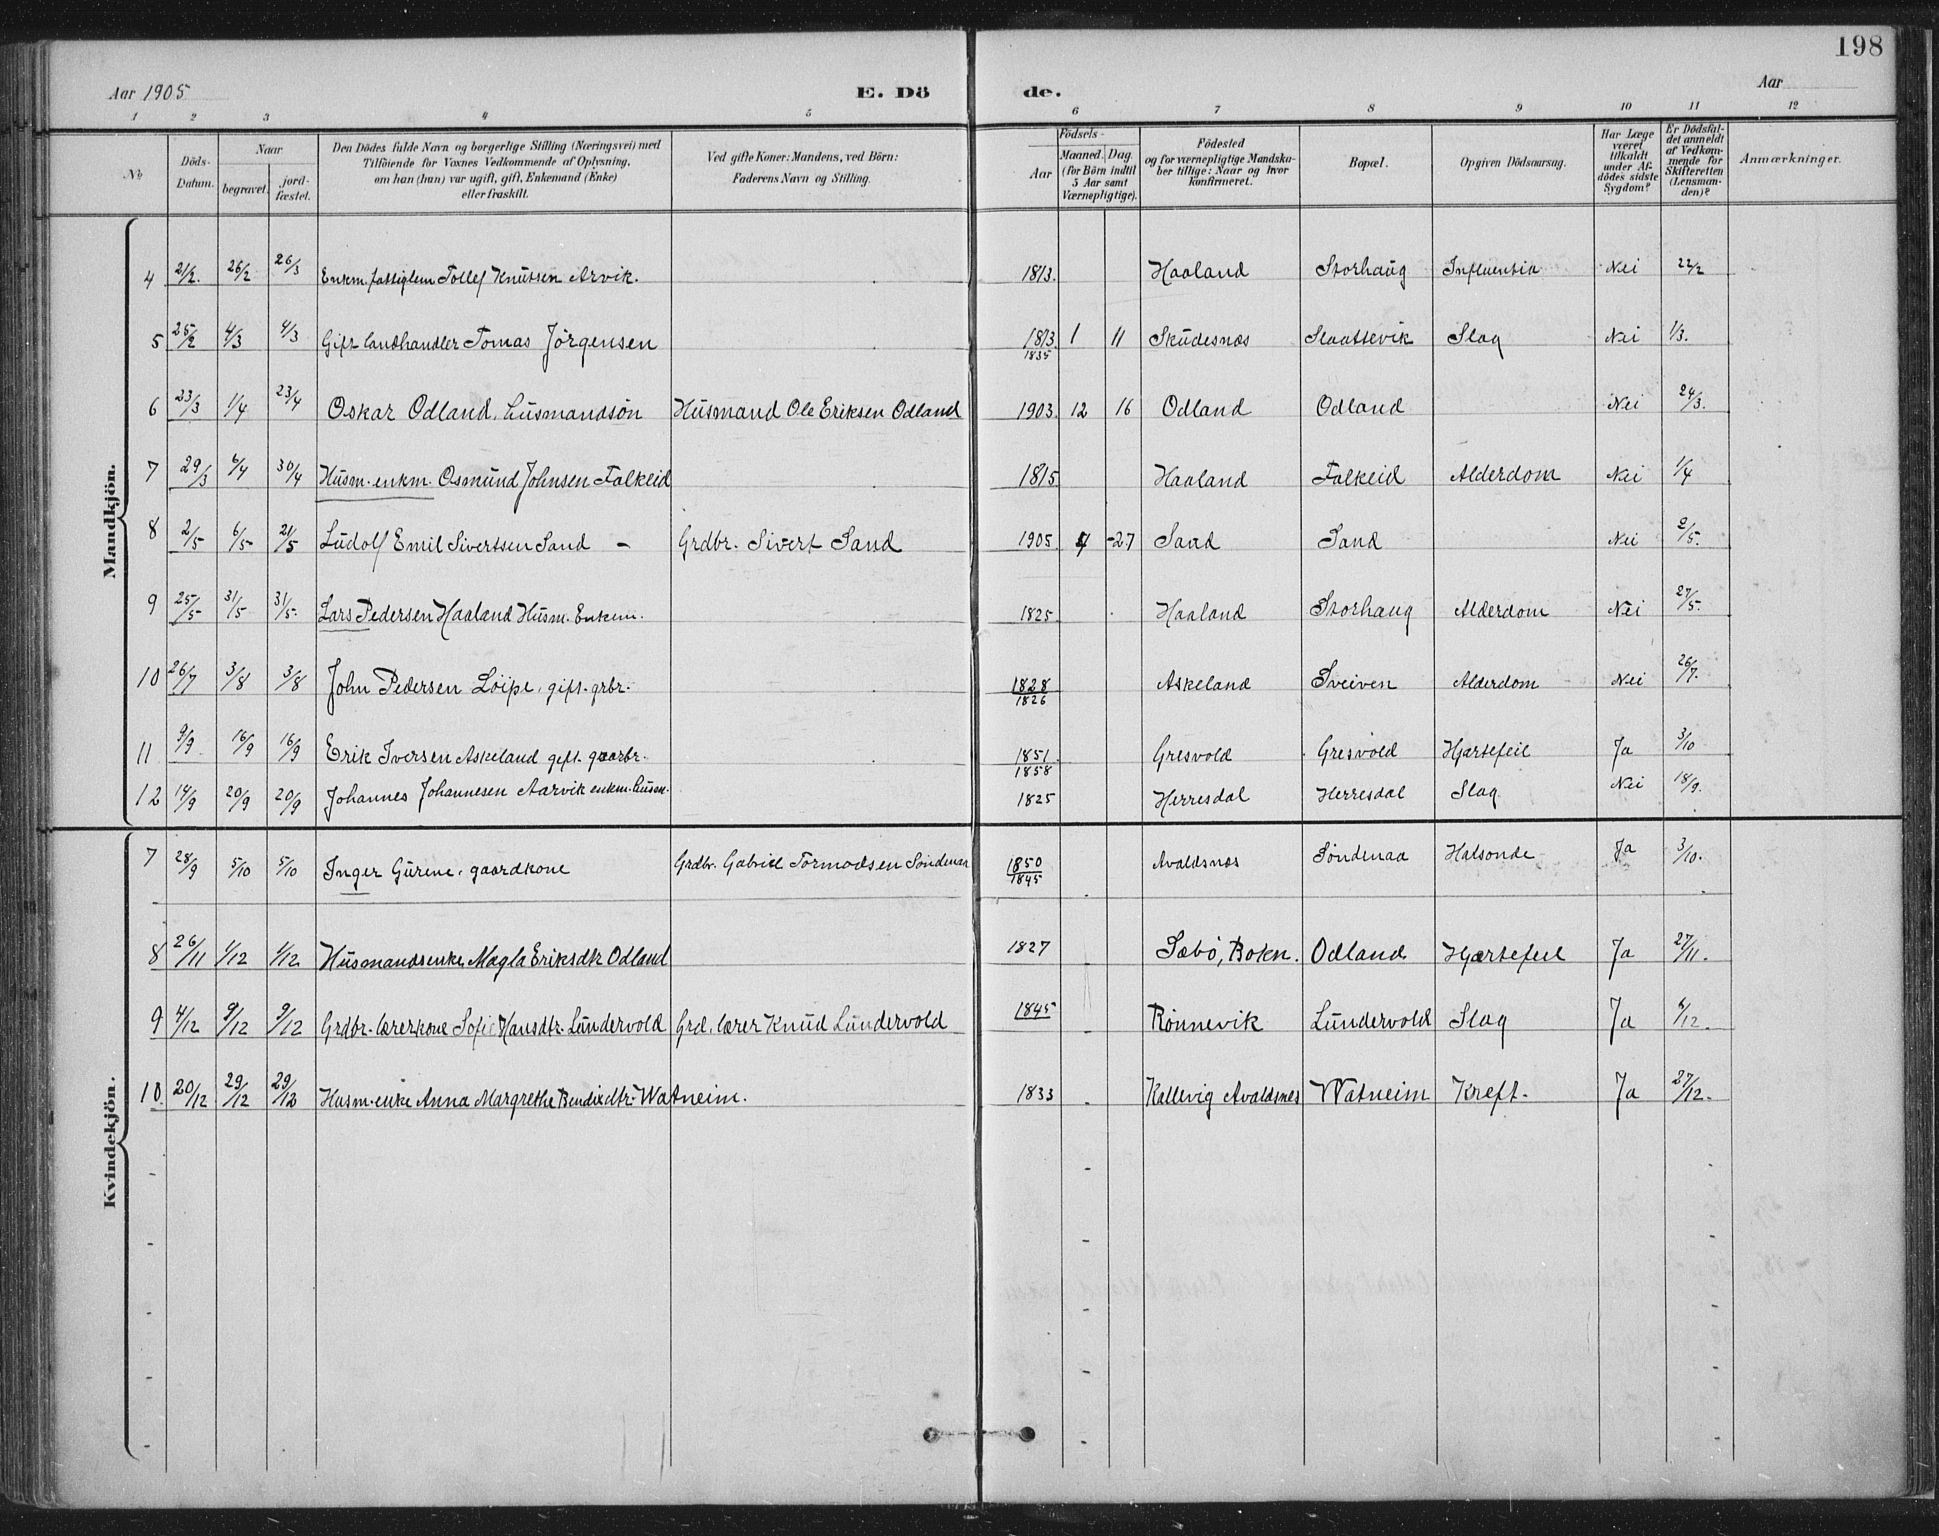 198
Aar 1905 E. Dö de. Aar
1 2 3 4 5 6 7 8 9 10 11 12
No
Döds-Datum.
Naar
begravet.
jord-fæstet.
Den Dödes fulde Navn og borgerlige Stilling (Næringsvei) med
Tilföiende for Voxnes Vedkommende af Oplysning,
om han (hun) var ugift, gift, Enkemand (Enke)
eller fraskilt.
Ved gifte Koner: Mandens, ved Börn:
Faderens Navn og Stilling.
Födsels-
Aar
Maaned. Dag.
(for Börn indtil
5 Aar samt
Værnepligtige).
Födested
og for værnepligtige Mandska-
ber tillige: Naar og hvor
konfirmeret.
Bopæl.
Opgiven Dödsaarsag.
Har Læge
været
tilkaldt
under Af-
dödes sidste
Sygdom?
Er Dödsfal-
det anmeldt
af Vedkom-
mende for
Skifteretten
(Lensman-
den)?
Anmærkninger.
Mandkjön.
4 21/2. 26/2 26/3 Enkm. fattiglem Tollef Knutsen Arvik. 1813. Haaland Storhaug Influentsia Nei 22/2
5 25/2 4/3 4/3 Gift landhandler Tomas Jörgensen 1813. 1 11 Skudesnæs Slaattevik Slag Nei 1/3.
1835
6 23/3 1/4 23/4 Oskar Odland, husmandsön Husmand Ole Eriksen Odland 1903. 12 16 Odland Odland Nei 24/3.
7 29/3 6/4 30/4 Husm. enkm. Osmund Johnsen Falkeid 1815. Haaland Falkeid Alderdom Nei 1/4
8 2/5 6/5 21/5 Ludolf Emil Sivertsen Sand – Grdbr. Sivert Sand 1905 4 -27 Sand Sand Nei 2/5.
9 25/5 31/5 31/5. Lars Pedersen Haaland Husm. Enkem. 1825 Haaland Storhaug Alderdom Nei 27/5.
10 26/7 3/8 3/8 John Pedersen Löipe, gift. grbr. 1828 Askeland Sveiven Alderdom Nei 26/7.
1826
11 9/9 16/9 16/9 Erik Iversen Askeland gift. gaarbr. 1851 Gresvold Gresvold Hjartefeil Ja 3/10
1858
12 14/9 20/9 20/9 Johannes Johannesen Aarvik enkm. husm. 1825 Herresdal Herresdal Slag Nei 18/9.
Kvindekjön.
7 28/9 5/10 5/10 Inger Gurine, gaardkone Grdbr. Gabriel Tormodsen Söndenaa 1850 Avaldsnæs Söndenaa Halsonde Ja 3/10.
1845
8 26/11 1/12 1/12 Husmandsenke, Magla Eriksdtr Odland 1827 Sæbö, Bokn. Odland Hjærtefeil Ja 27/11.
9 4/12 9/12 9/12 Grdbr.-lærerkone Sofie Hansdtr. Lundervold Grd. lærer Knud Lundervold 1845 Rönnevik Lundervold Slag Ja 6/12.
10 20/12 29/12 29/12 Husm-enke Anna Margrethe Bendixdtr. Watneim. 1833 Kallevig Avaldsnes Watneim Kreft. Ja 27/12.